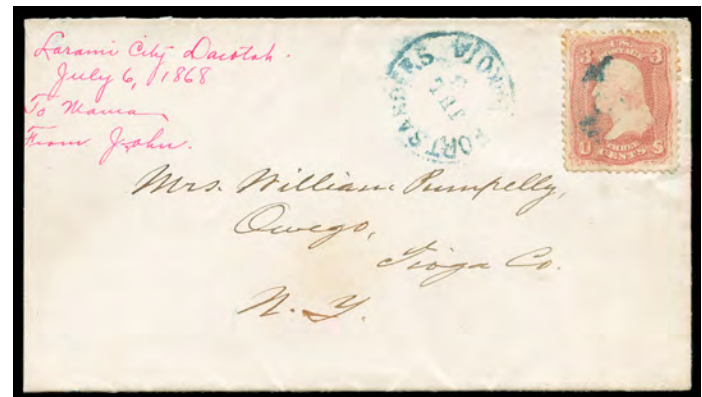 Larami City Dacotah.
July 6, 1868
To Mama
From John.
FORT SANDERS
JUL
3 U.S. 3
POSTAGE
THREE
U CENTS S
Mrs. William Pumpelly,
Owego,
Tioga Co.
N. Y.